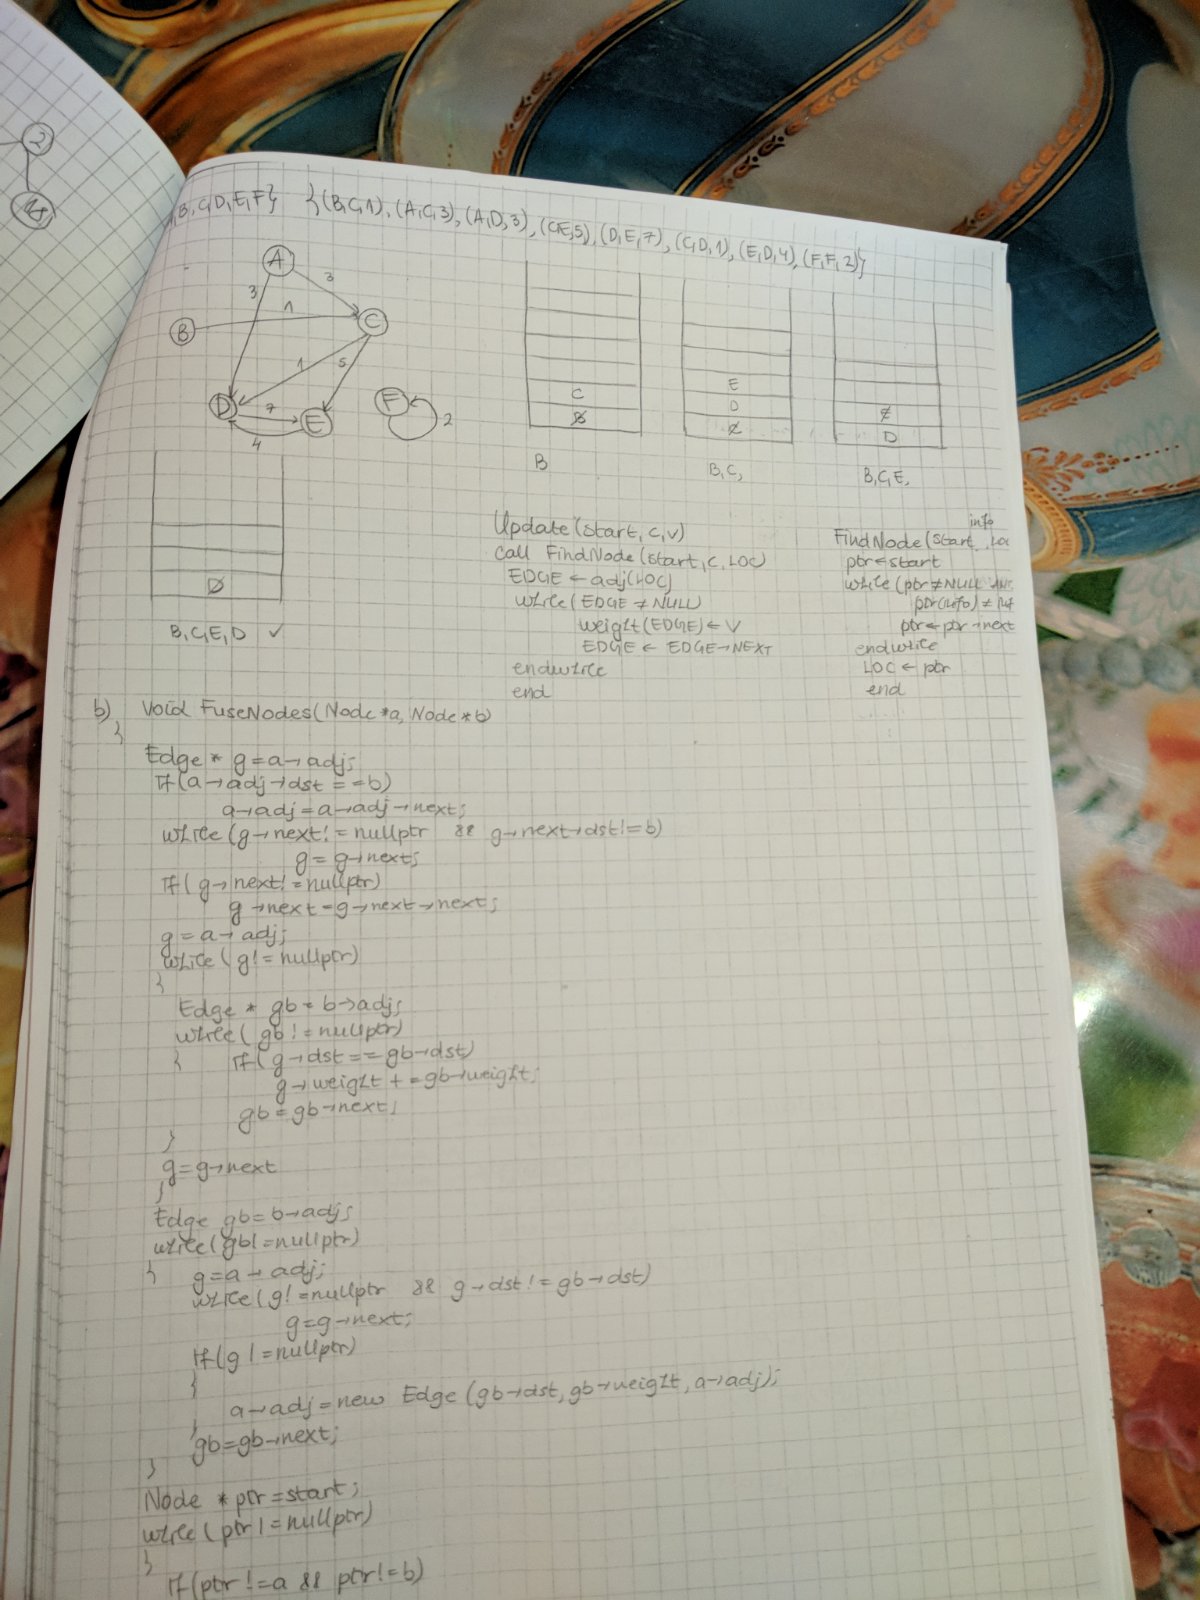 2
B,C,D,E,F} {(B,C,1), (A,C,3), (A,D,3), (C,E,5), (D,E,7), (C,D,1), (E,D,4), (F,F,2)}
A
3
3
B
1
C
1
5
D
7
E
4
F
2
C
B
B
E
D
C
B,C,
E
D
B,C,E,
D
B,C,E,D ✓
Update(start, c, v)
call FindNode(start, c, LOC)
EDGE ← adj(LOC)
while(EDGE ≠ NULL)
weight(EDGE) ← V
EDGE ← EDGE→NEXT
endwhile
end
info
FindNode(start, , LOC
ptr←start
while(ptr≠NULL
ptr(info) ≠
ptr←ptr→next
endwhile
LOC ← ptr
end
b) Void FuseNodes(Node *a, Node *b)
{
Edge * g=a→adj;
If(a→adj→dst==b)
a→adj=a→adj→next;
while(g→next!=nullptr && g→next→dst!=b)
g=g→next;
If(g→next!=nullptr)
g→next=g→next→next;
g=a→adj;
while(g!=nullptr)
{
Edge * gb=b→adj;
while(gb!=nullptr)
{ If(g→dst==gb→dst)
g→weight+=gb→weight;
gb=gb→next;
}
g=g→next
}
Edge gb=b→adj;
while(gb!=nullptr)
{ g=a→adj;
while(g!=nullptr && g→dst!=gb→dst)
g=g→next;
If(g!=nullptr)
{
a→adj=new Edge(gb→dst, gb→weight, a→adj);
}
gb=gb→next;
}
Node *ptr=start;
while(ptr!=nullptr)
{
If(ptr!=a && ptr!=b)